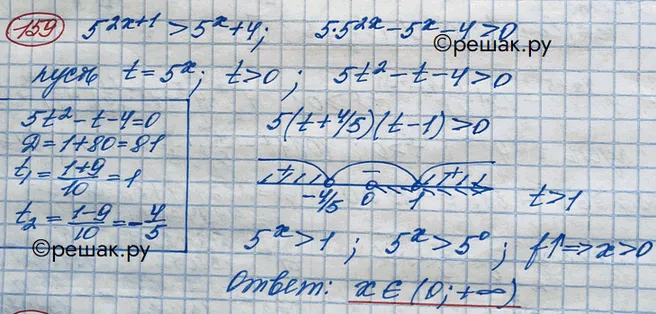 159 5^{2x+1} > 5^x + 4; 5·5^{2x} - 5^x - 4 > 0
©решак.ру
пусть t = 5^x; t > 0; 5t² - t - 4 > 0
5t² - t - 4 = 0
D = 1 + 80 = 81
t₁ = (1+9)/10 = 1
t₂ = (1-9)/10 = -4/5
©решак.ру
5(t + 4/5)(t - 1) > 0
+ - +
-4/5 0 1
t > 1
5^x > 1; 5^x > 5^0; f↑ ⇒ x > 0
Ответ: x ∈ (0; +∞)